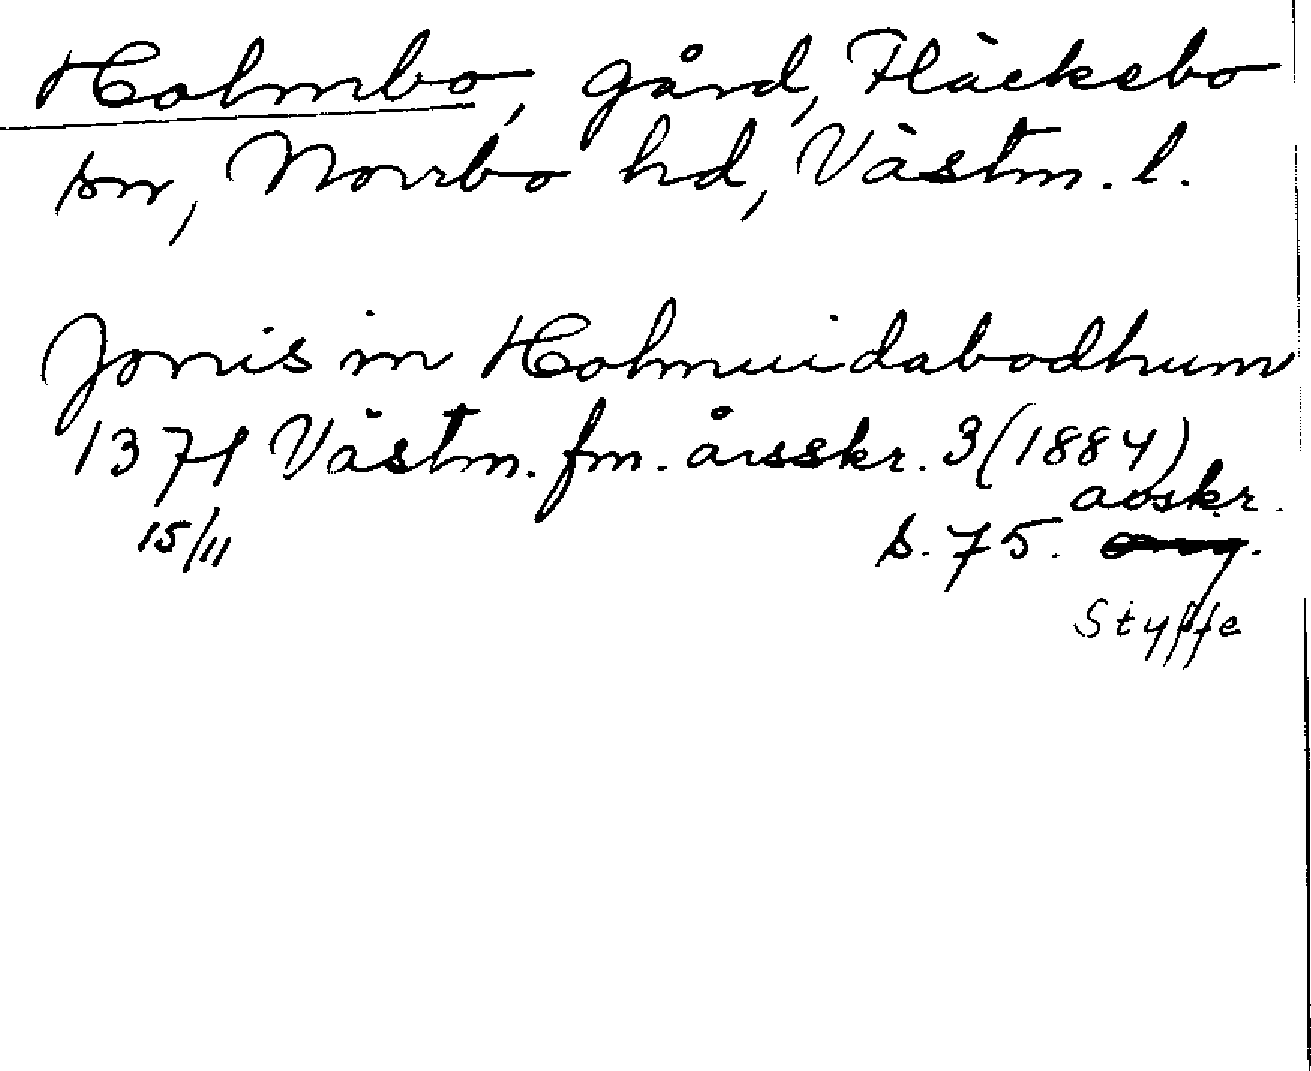 Holmbo, gård, Fläckebo
sn, Norrbo hd, Västm. l.
Jonis in Holmuidabodhum
1371 Västm. fm. årsskr. 3 (1884)
avskr.
15/11 s. 75.
Styffe